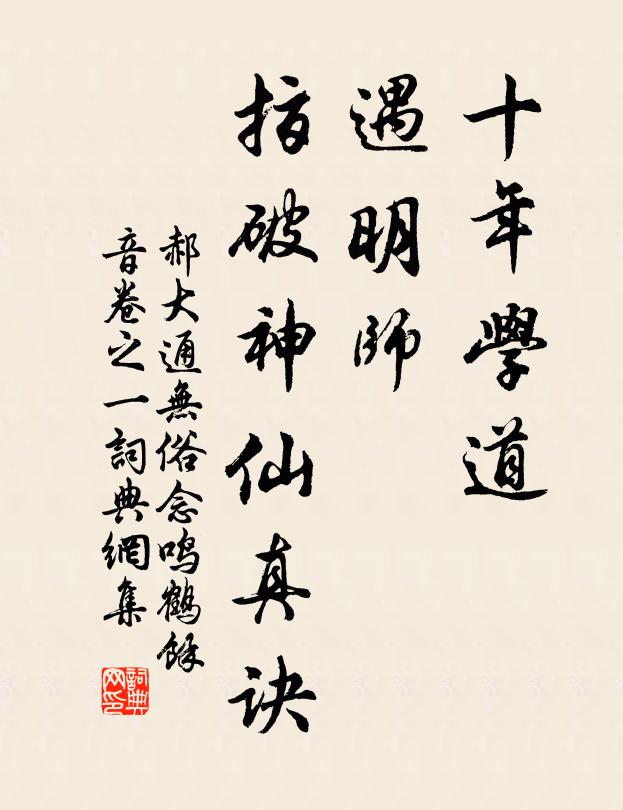 十年學道
遇明师
指破神仙真诀
郝大通無俗念鸣鶴餘
音卷之一詞典網集
詞典
网印